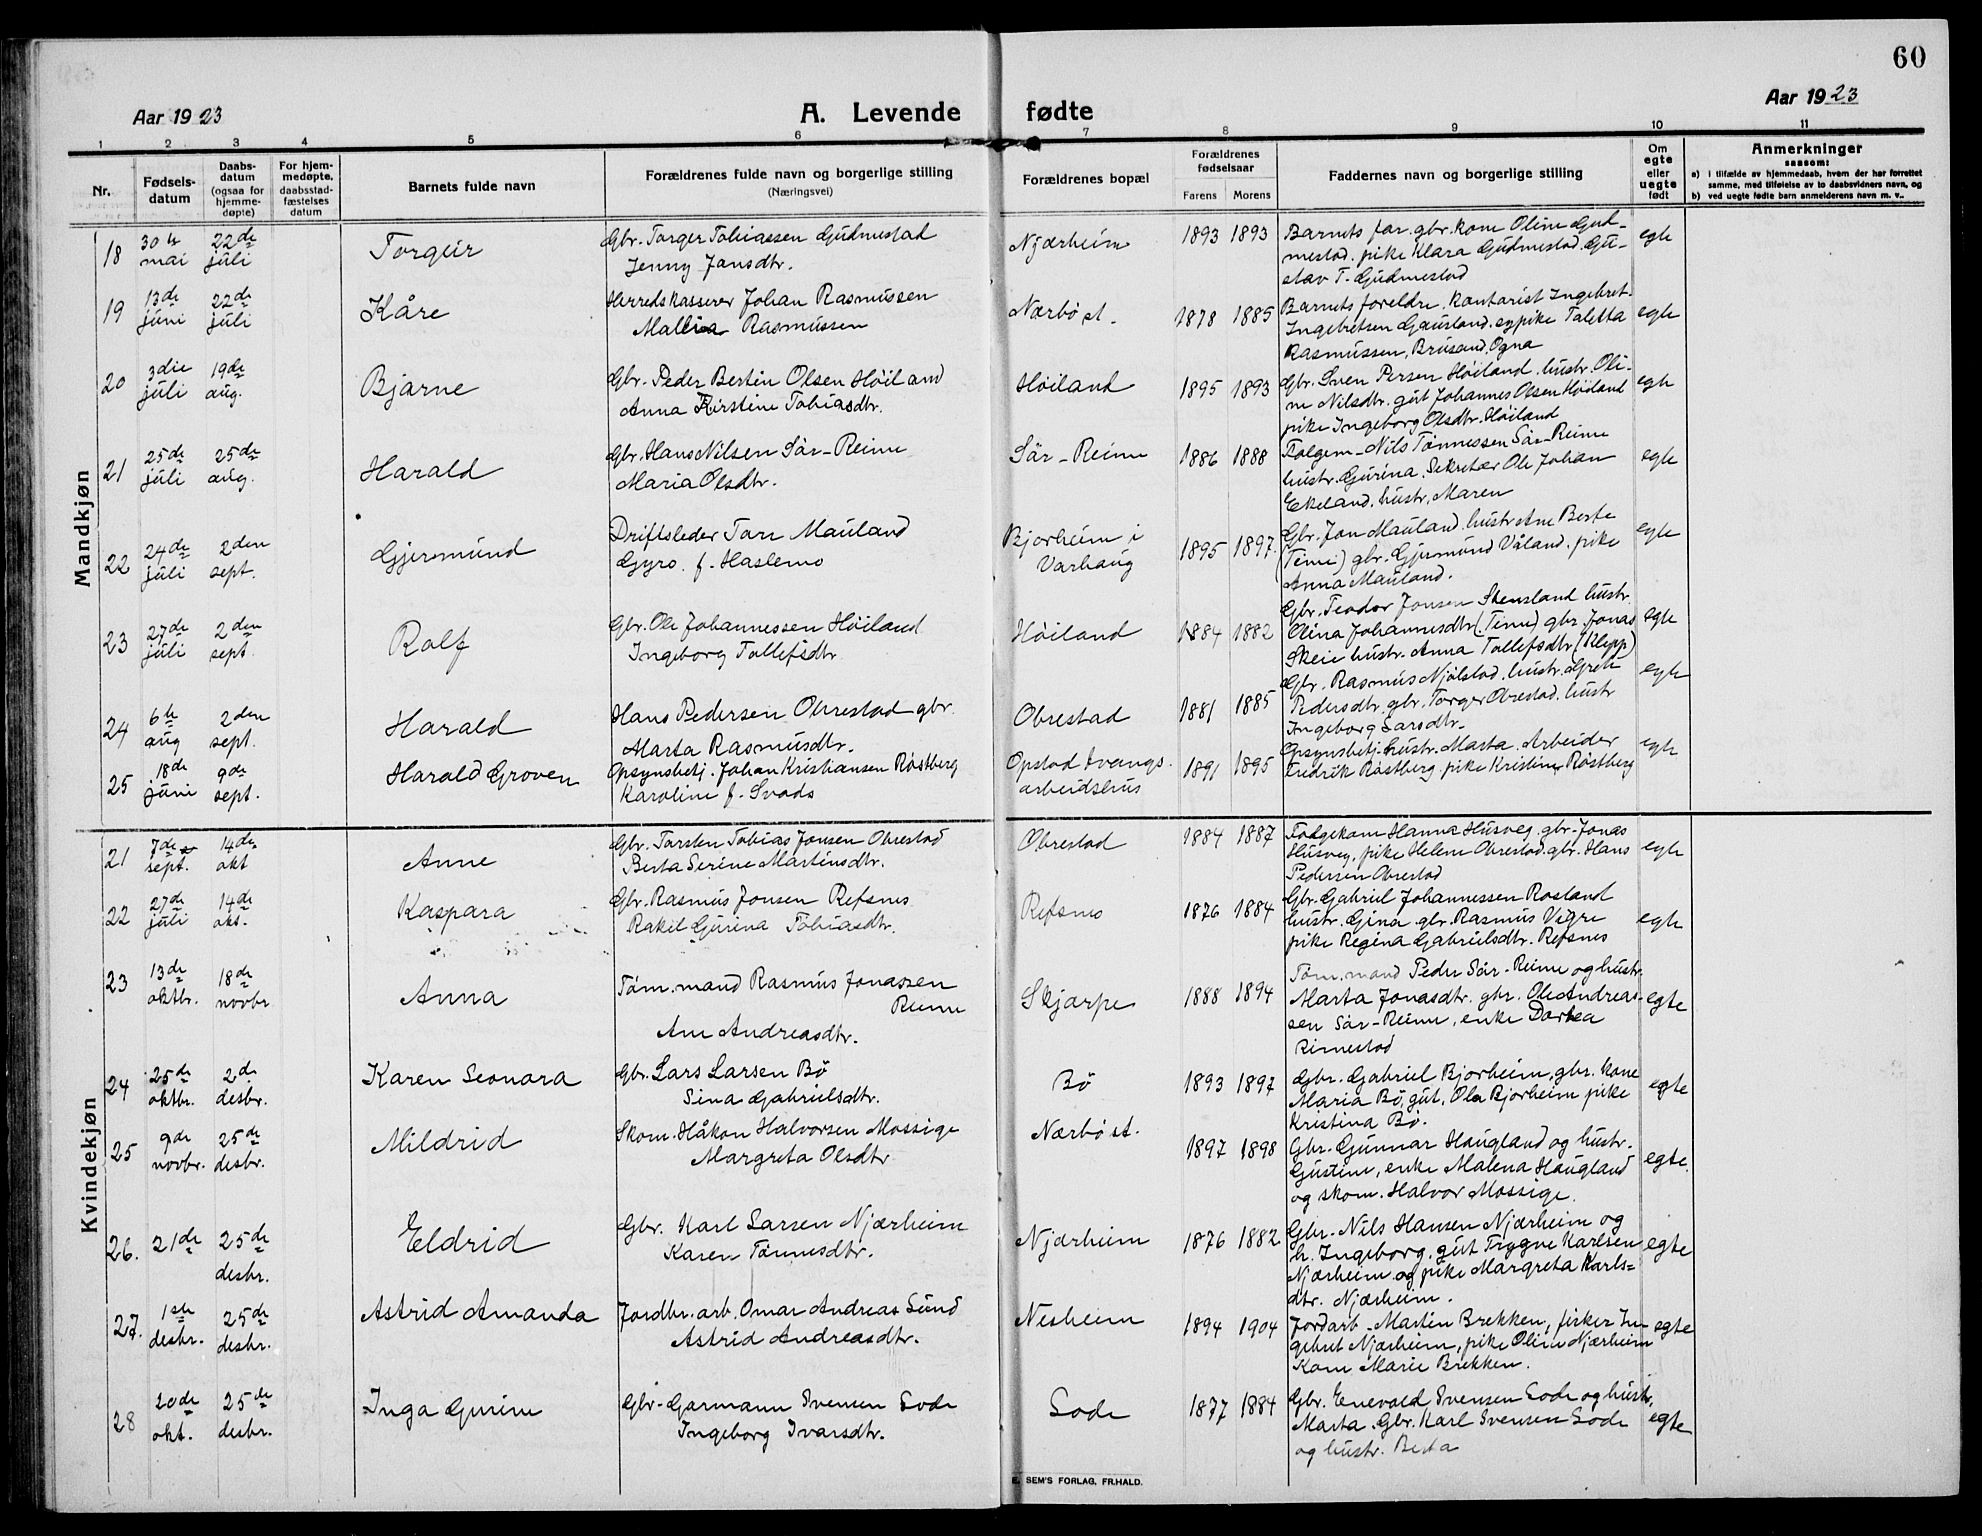 60
Aar 1923
A. Levende fødte
Aar 1923
1 2 3 4 5 6 7 8 9 10 11
Nr.
Fødsels-
datum
Daabs-
datum
(ogsaa for
hjemme-
døpte)
For hjem-
medøpte,
daabsstad-
fæstelses
datum
Barnets fulde navn
Forældrenes fulde navn og borgerlige stilling
(Næringsvei)
Forældrenes bopæl
Forældrenes
fødselsaar
Farens Morens
Faddernes navn og borgerlige stilling
Om
egte
eller
uegte
født
Anmerkninger
saasom:
a) i tilfælde av hjemmedaab, hvem der har forrettet
samme, med tilføielse av to daabsvidners navn, og
b) ved uegte fødte barn anmelderens navn m. v.
Mandkjøn
18
30te
mai
22de
juli
Torgeir
Gbr. Torger Tobiassen Gudmestad
Jenny Jansdtr.
Njærheim
1893 1893
Barnets far. gbr. kone Oline Gud-
mestad. pike Klara Gudmestad. Gu-
stav T. Gudmestad
egte
19
13de
juni
22de
juli
Kåre
Herredskasserer Johan Rasmussen
Mallia Rasmussen
Nærbø st.
1878 1885
Barnets foreldre. Kontorist Ingebret
Ingebretsen Gausland. egpike Taletta
Rasmussen, Brusand, Ogna
egte
20
3die
juli
19de
aug.
Bjarne
Gbr. Peder Bertin Olsen Høiland
Anna Kirstine Tobiasdtr.
Høiland
1895 1893
Gbr. Sven Persen Høiland. hustr. Oli-
ne Nilsdtr. gut Johannes Olsen Høiland
pike Ingeborg Olsdtr. Høiland
egte
21
25de
juli
25de
aug.
Harald
Gbr. Hans Nilsen Sør-Reime
Maria Olsdtr.
Sør-Reime
1886 1888
Folgem. Nils Tønnessen Sør-Reime
hustr. Gurina. Sekretær Ole Johan
Ekeland, hustr. Maren
egte
22
24de
juli
2den
sept.
Gjermund
Driftsleder Tore Mauland
Gyro. f. Haslemo
Bjorheim i
Varhaug
1895 1897.
Gbr. Jon Mauland. hustr Ane Berte
(Time) gbr. Gjermund Våland. pike
Anna Mauland.
egte
23
27de
juli
2den
sept.
Rolf
Gbr. Ole Johannessen Høiland
Ingeborg Tollefsdtr.
Høiland
1884 1882
Gbr. Teodor Jonsen Stensland hustr.
Olina Johannesdtr. (Time) gbr. Jonas
Skeie hustr. Anna Tollefsdtr. (Klepp)
egte
24
6te
aug
2den
sept.
Harald
Hans Pedersen Obrestad gbr.
Marta Rasmusdtr.
Obrestad
1881 1885
Gbr. Rasmus Njølstad. hustr. Grete
Pedersdtr. gbr. Torger Obrestad. hustr
Ingeborg Larsdtr.
egte
25
18de
juni
9de
sept.
Harald Groven
Opsynsbetj. Johan Kristiansen Røstberg
Karoline f. Svads
Opstad tvangs-
arbeidshus
1891 1895
Opsynsbetj. hustr. Marta. Arbeider
Fredrik Røstberg pike Kristine Røstberg
egte
Kvindekjøn
21
7de
sept.
14de
okt
Anne
Gbr. Torsten Tobias Jonsen Obrestad
Berta Serine Martinsdtr.
Obrestad
1884 1887
Folgekone Hanna Husveg. gbr. Jonas
Husveg, pike Helene Obrestad. gbr. Hans
Pedersen Obrestad
egte
22
27de
juli
14de
okt.
Kaspara
Gbr. Rasmus Jonsen Refsnes
Rakel Gurina Tobiasdtr.
Refsnes
1876 1884
Gbr. Gabriel Johannessen Rosland
hustr. Gina. gbr. Rasmus Vigre
pike Regina Gabrielsdtr. Refsnes
egte
23
13de
oktbr.
18de
novbr
Anna
Tøm.mand Rasmus Jonassen
Reime
Ane Andreasdtr.
Skjærpe
1888 1894
Tøm.mand Peder Sør-Reime og hustr.
Marta Jonasdtr. gbr. Ole Andreas-
sen Sør-Reime, enke Dortea
Rimestad
egte
24
25de
oktbr.
2de
desbr.
Karen Leonora
Gbr. Lars Larsen Bø
Sina Gabrielsdtr.
Bø
1893 1897
Gbr. Gabriel Bjorheim, gbr. kone
Maria Bø, gut. Ola Bjorheim pike
Kristina Bø.
egte
25
9de
novbr.
25de
desbr.
Mildrid
Skom. Håkon Halvorsen Mossige
Margreta Olsdtr
Nærbø st.
1897 1898
Gbr. Gunnar Haugland og hustr.
Gustine, enke Malena Haugland
og skom. Halvor Mossige.
egte.
26.
21de
25de
desbr.
Eldrid
Gbr. Karl Larsen Njærheim
Karen Tønnesdtr.
Njærheim
1876 1882
Gbr. Nils Hansen Njærheim og
h. Ingeborg, gut Trygve Karlsen
Njærheim og pike Margreta Karls=
dtr. Njærheim.
egte
27.
1ste
desbr.
25de
desbr.
Astrid Amanda
Jordbr. arb. Omar Andreas Lund
Astrid Andreasdtr.
Nesheim
1894 1904
Jordarb. Martin Brekken, fisker In-
gebret Njærheim, pike Oline Njærheim
Kone Marie Brekken.
egte
28
20de
okt.
25de
desbr.
Inga Gurine
Gbr. Garmann Svensen Lode
Ingeborg Ivarsdtr.
Lode
1877 1884
Gbr. Enevald Svensen Lode og hustr.
Marta. Gbr. Karl Svensen Lode
og hustr. Berta
egte
E. SEM'S FORLAG, FR.HALD.